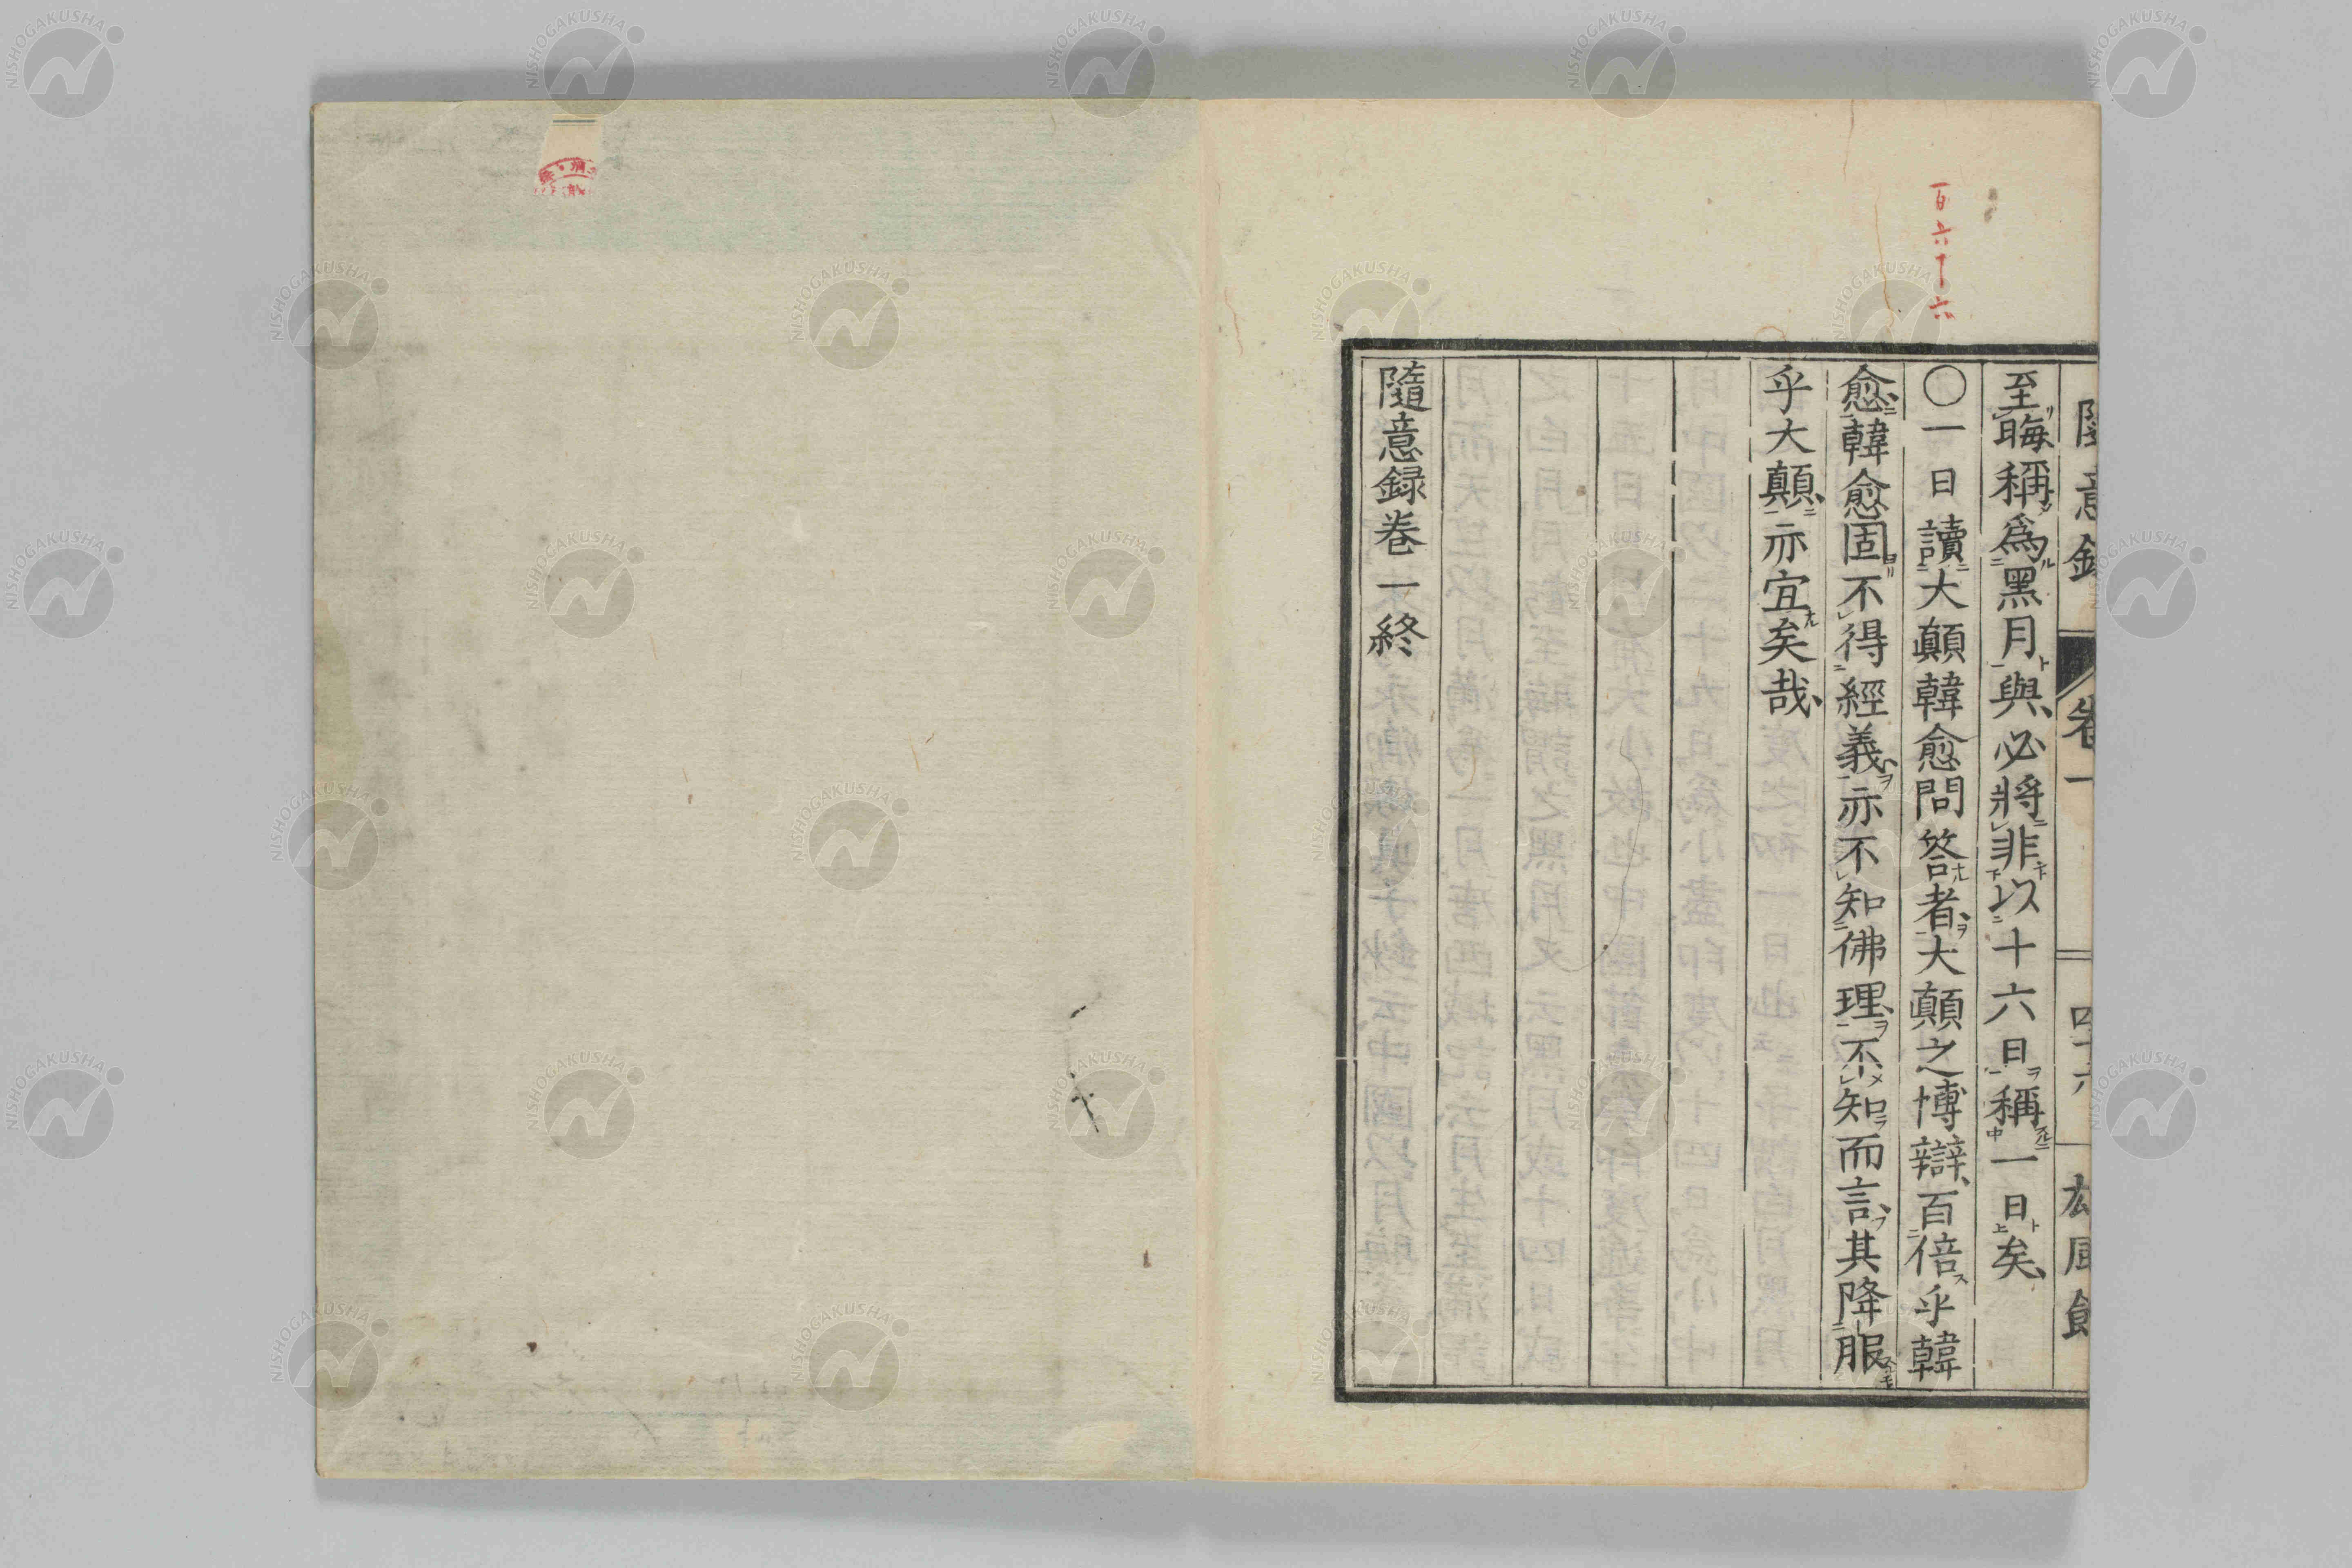 百六十六
隨意錄 卷一 四十六
至晦稱爲黑月與必將非以十六日稱一日矣
〇一日讀大顚韓愈問答者大顚之博辯百倍乎韓
愈韓愈固不得經義亦不知佛理不知而言其降服
乎大顚亦宜矣哉
隨意録卷一終
NISHOGAKUSHA